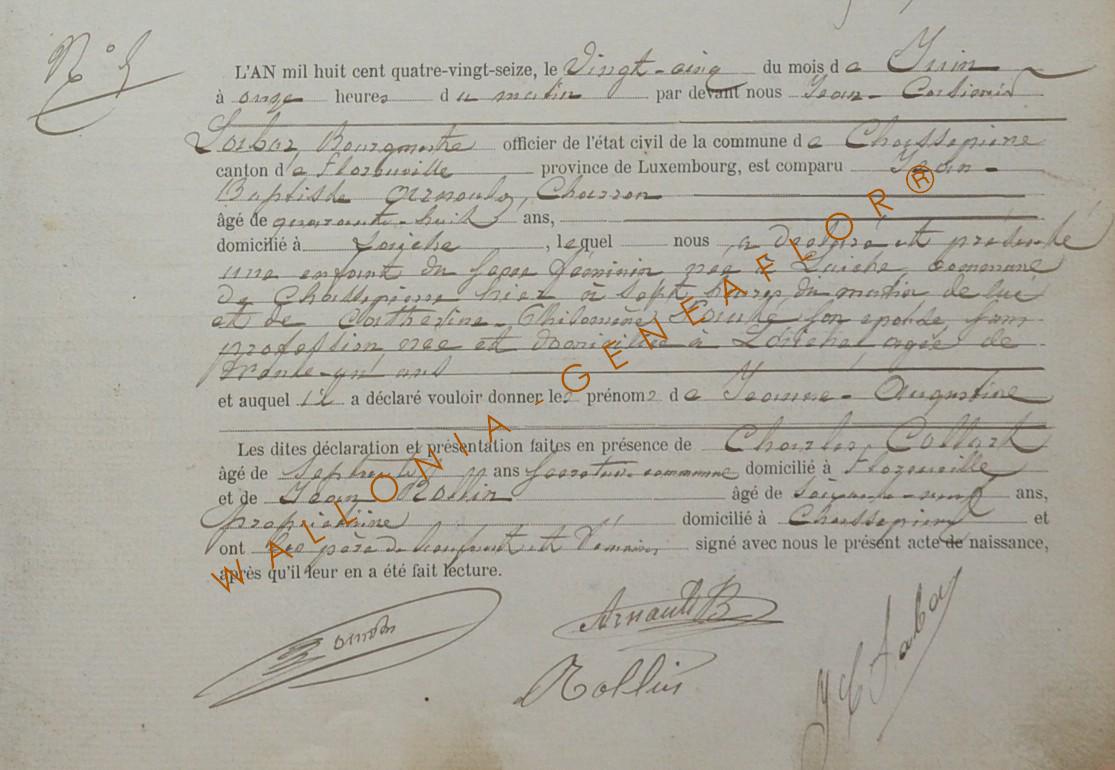 N° 5
L'AN mil huit cent quatre-vingt-seize, le Vingt-cinq du mois de Juin
à onze heures du matin par devant nous Jean-Casimir
Bourgmestre officier de l'état civil de la commune de Chassepierre
canton de Florenville province de Luxembourg, est comparu Jean-
Baptiste Arnould, Charron
âgé de quarante-huit ans,
domicilié à Laiche, lequel nous a déclaré et présenté
une enfant du sexe féminin née à Laiche, commune
de Chassepierre hier à sept heures du matin de lui
et de Catherine-Philomène son épouse sans
profession née et domiciliée à Laiche agée de
trente-un ans
et auquel il a déclaré vouloir donner les prénoms de Jeanne-Augustine
Les dites déclaration et présentation faites en présence de Charles Collart
âgé de ans Secrétaire communal domicilié à Florenville
et de Jean Rollin âgé de soixante-neuf ans,
propriétaire domicilié à Chassepierre et
ont les père de l'enfant et témoins signé avec nous le présent acte de naissance,
après qu'il leur en a été fait lecture.
Arnould JB
Rollin
WALLONIA-GENEAFLOR®